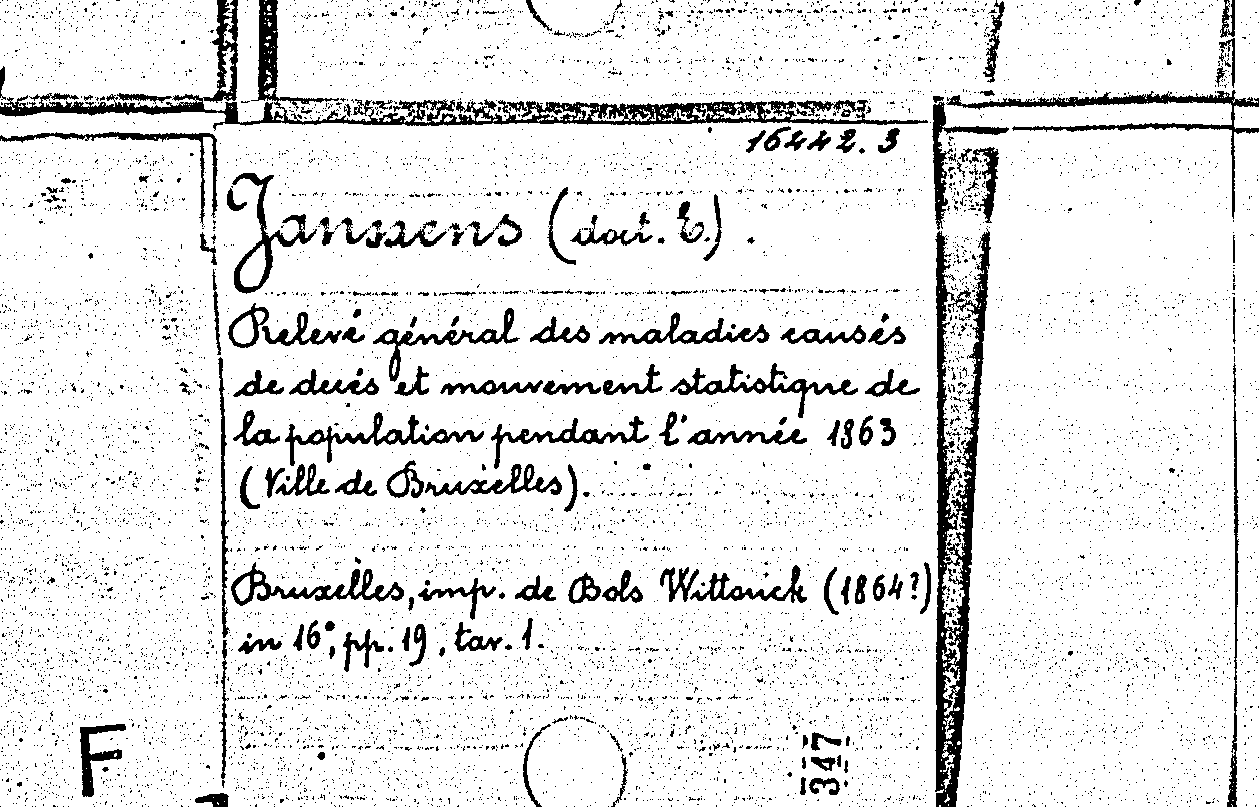 16442.3
Janssens (doct. E.).
Relevé général des maladies causés
de decés et mouvement statistique de
la population pendant l'année 1863
(Ville de Bruxelles).
Bruxelles, imp. de Bols Wittouck (1864?)
in 16°, pp. 19, tav. 1.
F
347